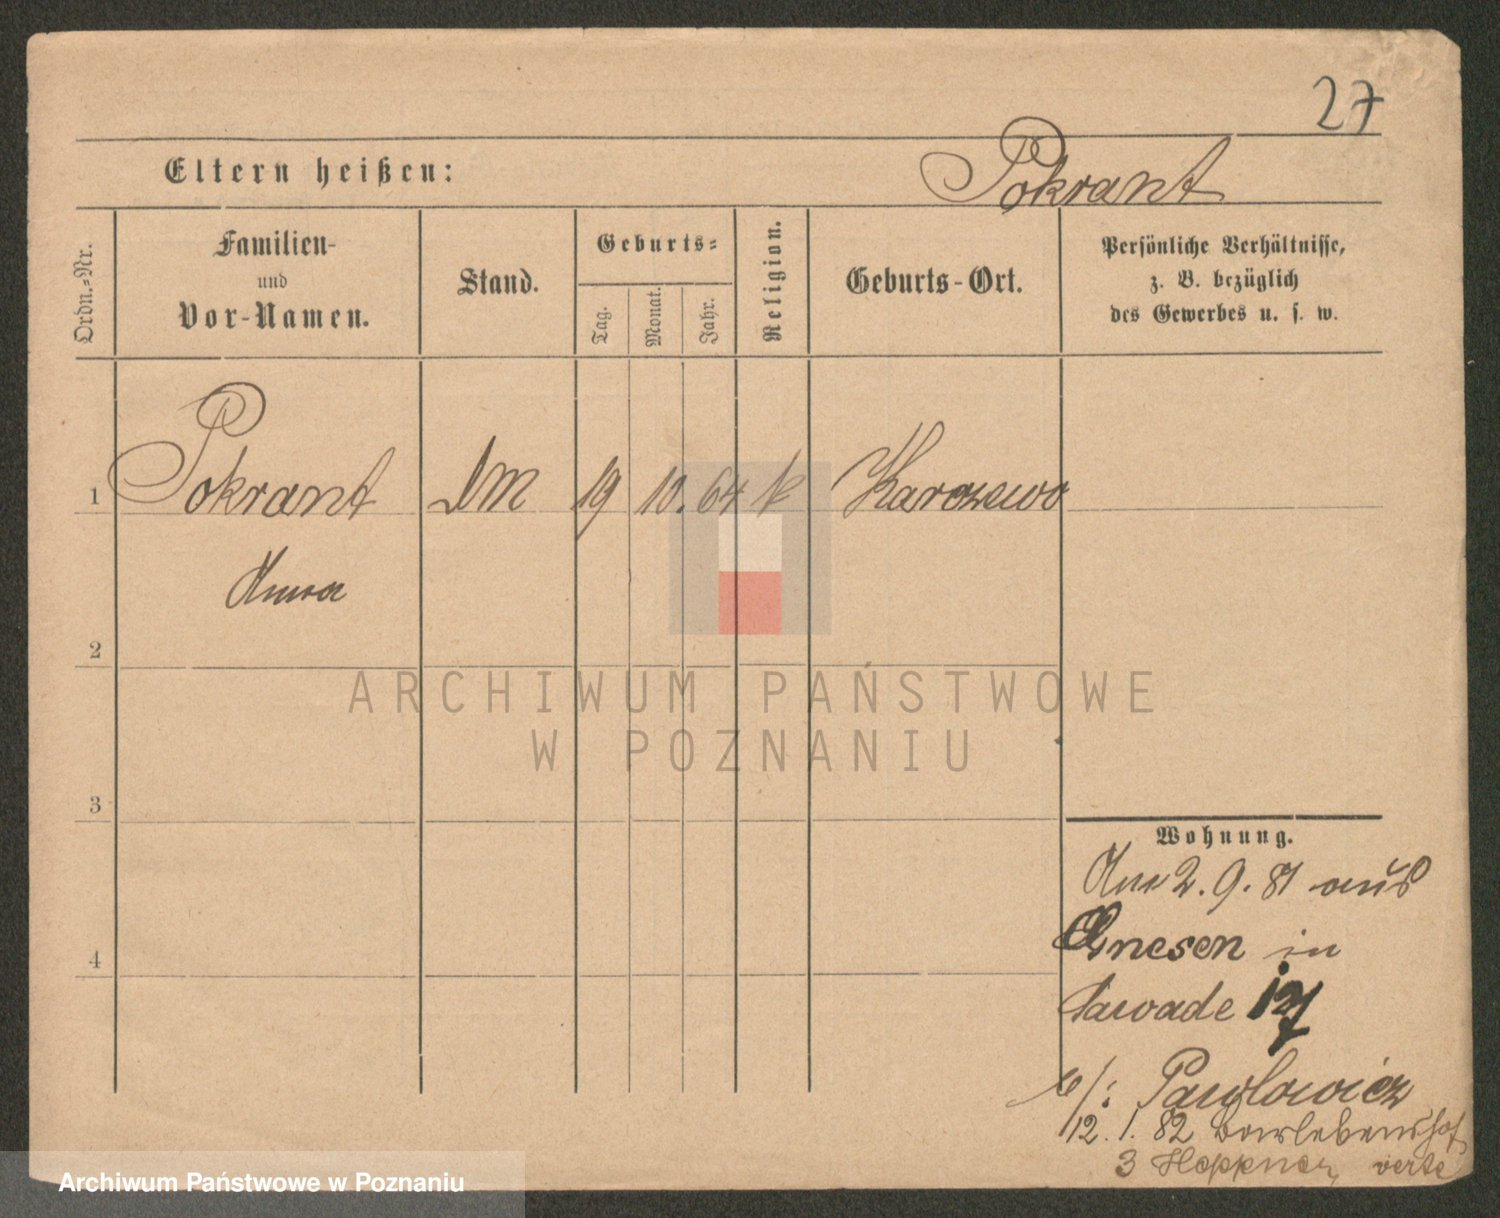 27
Eltern heißen:
Pokrant
Ordn.-Nr.
Familien-
und
Vor-Namen.
Stand.
Geburts-
Tag.
Monat.
Jahr.
Religion.
Geburts-Ort.
Persönliche Verhältnisse,
z. B. bezüglich
des Gewerbes u. s. w.
1 Pokrant DM 19 10. 64 k Karczewo
Anna
2
ARCHIWUM PAŃSTWOWE
W POZNANIU
3
4
Wohnung.
Am 2. 9. 81 aus
Gnesen in
Zawade
b/: Pawlowicz
12. 1. 82
3 Heppner, verte
Archiwum Państwowe w Poznaniu